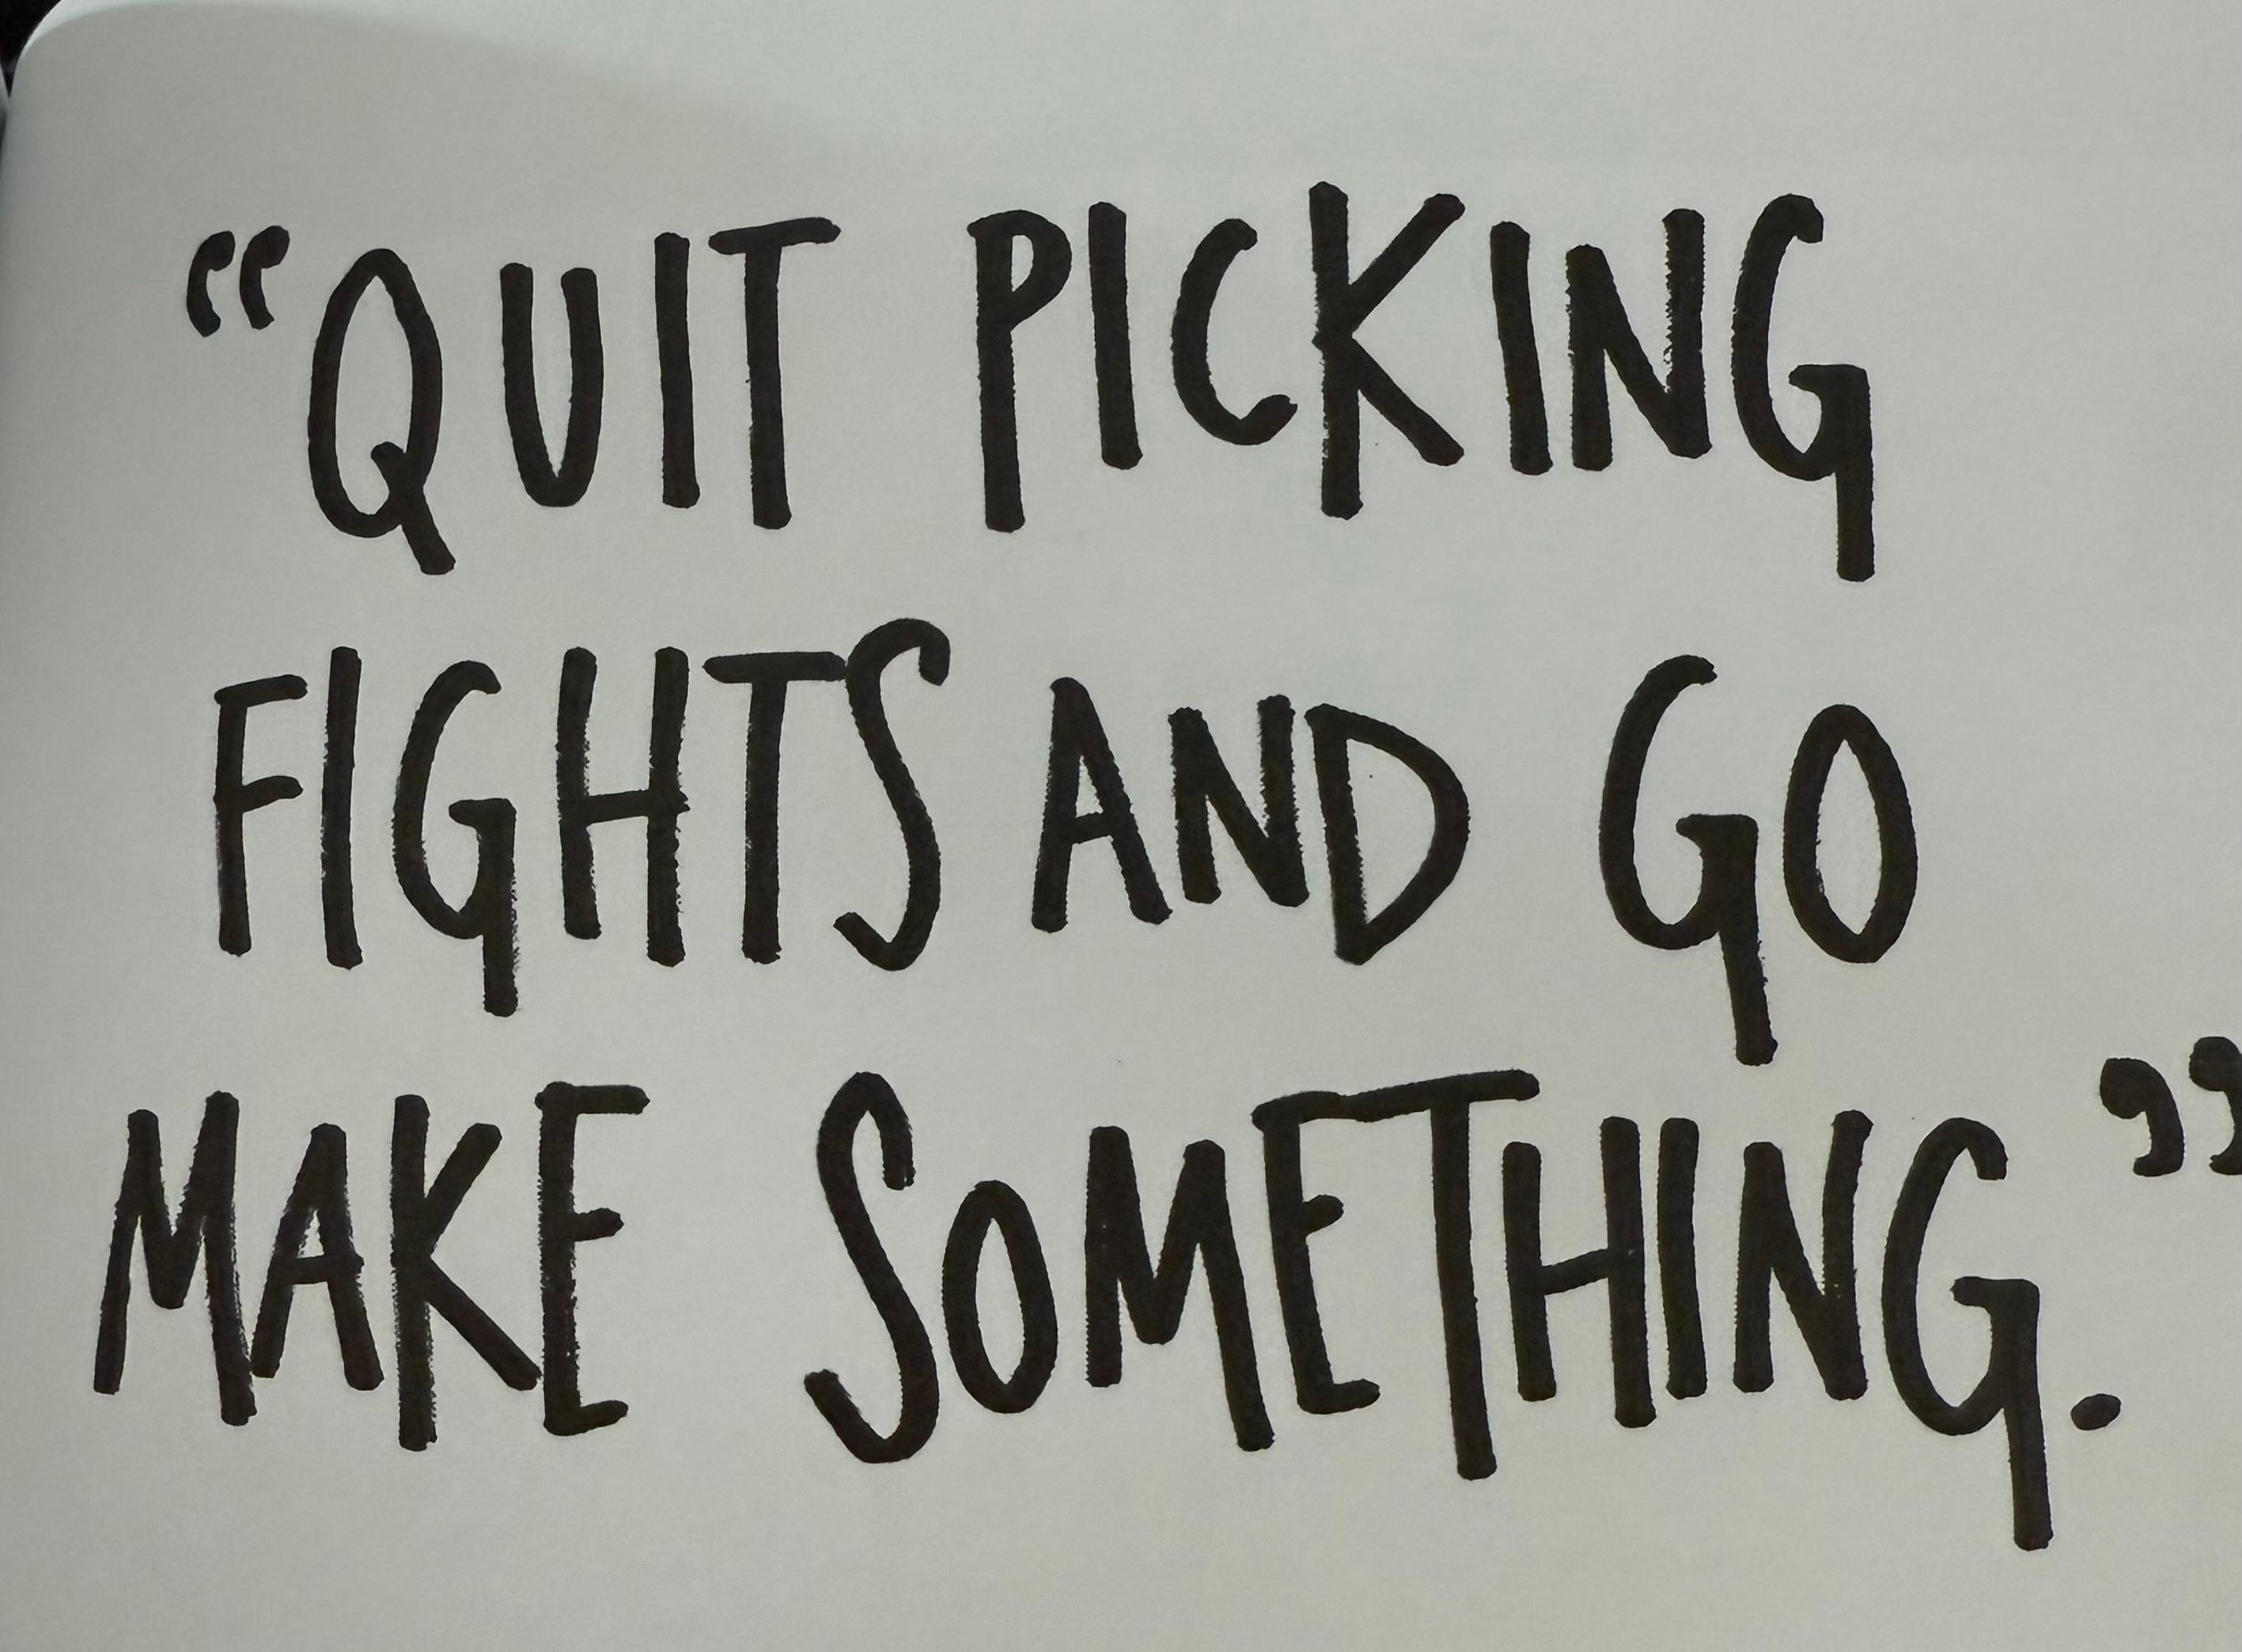 “QUIT PICKING
FIGHTS AND GO
MAKE SOMETHING.”